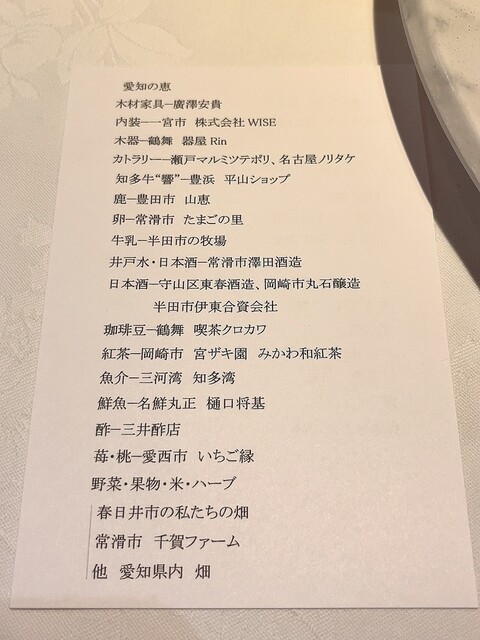 愛知の恵
木材家具ー廣澤安貴
内装ー一宮市　株式会社 WISE
木器ー鶴舞　器屋 Rin
カトラリーー瀬戸マルミツテポリ、名古屋ノリタケ
知多牛“響”ー豊浜　平山ショップ
鹿ー豊田市　山恵
卵ー常滑市　たまごの里
牛乳ー半田市の牧場
井戸水・日本酒ー常滑市澤田酒造
日本酒ー守山区東春酒造、岡崎市丸石醸造
半田市伊東合資会社
珈琲豆ー鶴舞　喫茶クロカワ
紅茶ー岡崎市　宮ザキ園　みかわ和紅茶
魚介ー三河湾　知多湾
鮮魚ー名鮮丸正　樋口将基
酢ー三井酢店
苺・桃ー愛西市　いちご縁
野菜・果物・米・ハーブ
春日井市の私たちの畑
常滑市　千賀ファーム
他　愛知県内　畑